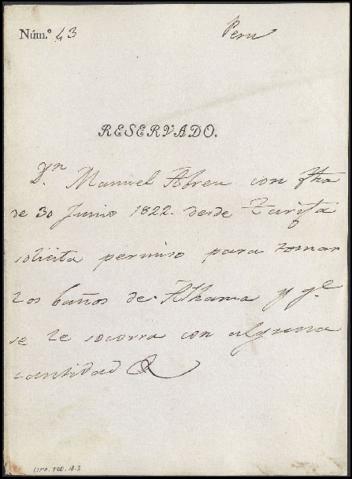 Núm.º 43
Peru
RESERVADO.
Dn. Manuel Abreu con fha
de 30 Junio 1822. desde Tarifa
solicita permiso para tomar
los baños de Alhama y qe.
se le socorra con alguna
cantidad